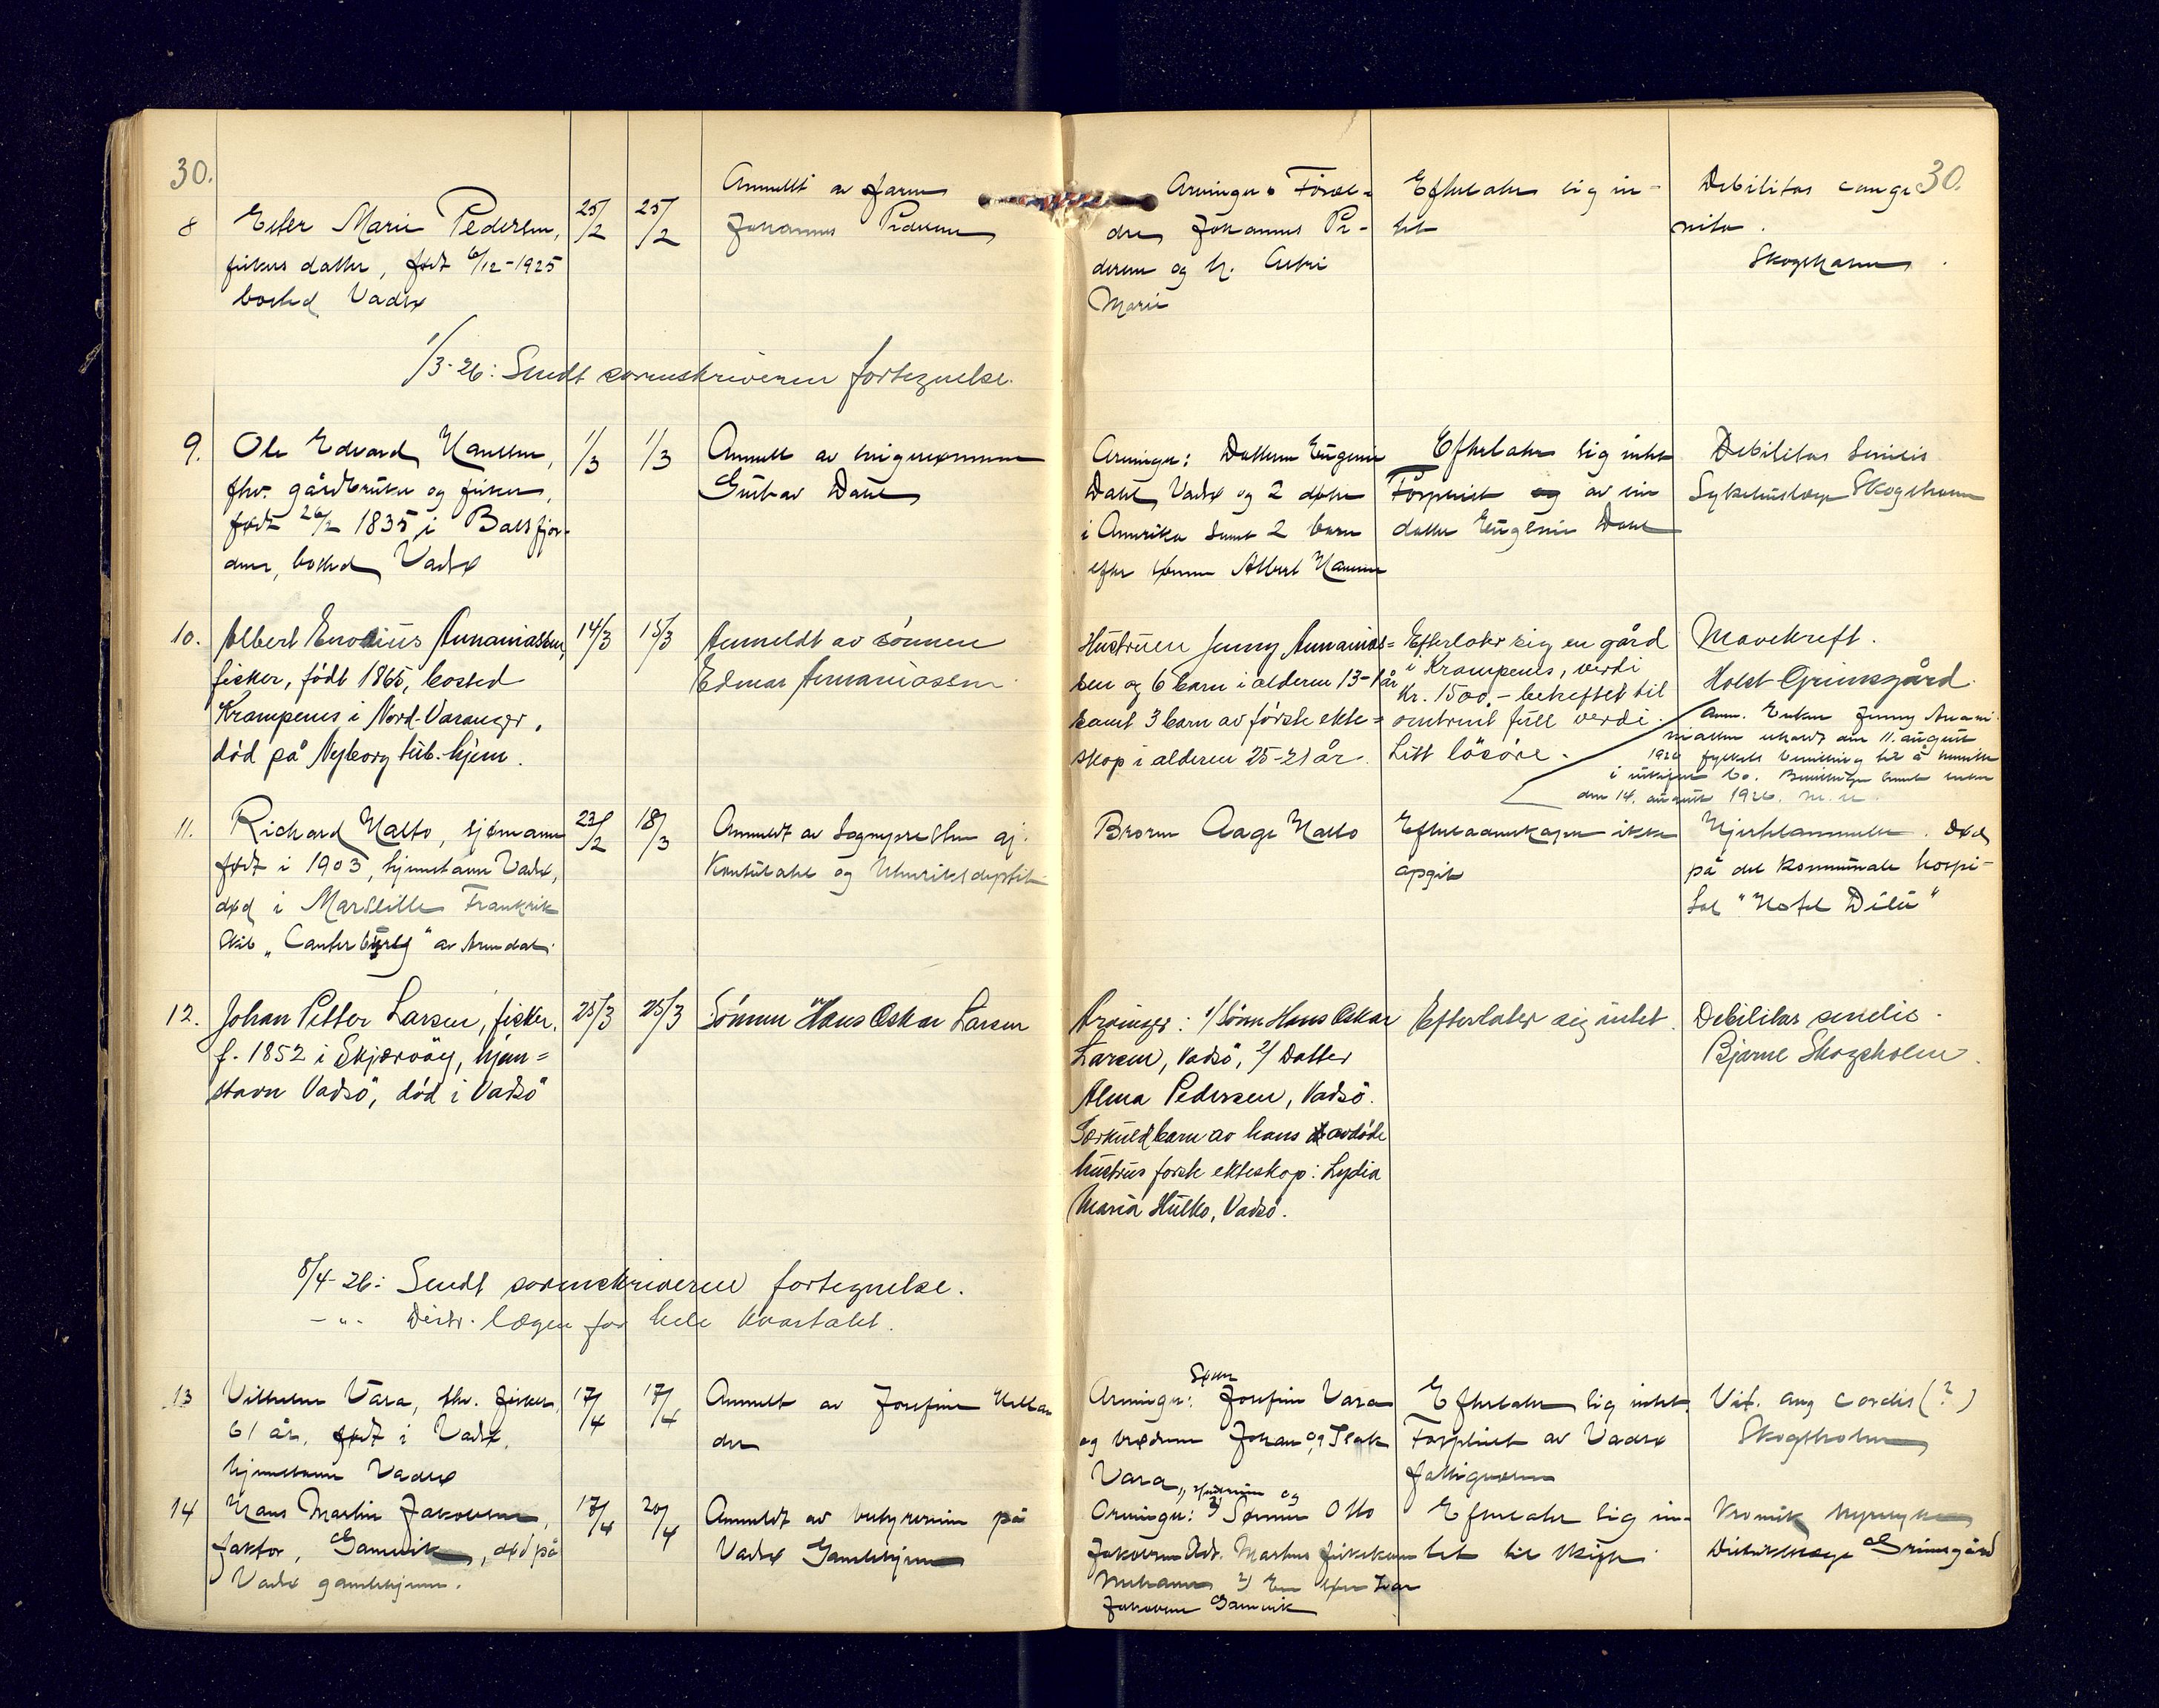 30.
8 Ester Marie Pedersen, 25/2 25/2 Anmeldt av faren
fiskers datter, født 6/12-1925 Johannes Pedersen
bosted Vadsø
1/3-26: Sendt sorenskriveren fortegnelse.
9. Ole Edvard Hansen, 1/3 1/3 Anmeldt av svigersønnen
fhv. gårdbruker og fisker, Gustav Dahl
født 26/2 1835 i Balsfjor-
den, bosted Vadsø
10. Albert Enokius Annaniassen, 14/3 15/3 Anmeldt av sønnen
fisker, født 1865, bosted Edmar Annaniassen
Krampenes i Nord-Varanger,
død på Nyborg tub.hjem.
11. Richard Nalto, sjømann 23/2 18/3 Anmeldt av Sognepresten gj.
født i 1903, hjemstavn Vadsø, Konsulatet og Utenriksdeptet
død i Marseille Frankrik
Skib "Canterbury" av Arendal.
12. Johan Petter Larsen, fisker, 25/3 25/3 Sønnen Hans Oskar Larsen
f. 1852 i Skjærvöy, hjem=
stavn Vadsö, död i Vadsö
8/4-26: Sendt sorenskriveren fortegnelse.
- " - Distr. lægen for hele kvartalet.
13 Vilhelm Vara, fhv. fisker, 17/4 17/4 Anmeldt av Josefine
61 år, født i Vadsø,
hjemstavn Vadsø
14 Hans Martin Jakobsen, 17/4 20/4 Anmeldt av bestyrerinnen på
faktor, Gamvik, død på Vadsø Gamlehjem
Vadsø gamlehjem.
30.
Arvinger: Foræl- Efterlater sig in- Debilitas conge
dre Johannes Pe- tet nita.
dersen og h. Skogsholm.
Marie
Arvinger: Datteren Eugenie Efterlater sig intet Debilitas Senilis
Dahl Vadsø og 2 døtre Forpleiet av sin Sykehuslæge Skogsholm
i Amerika samt 2 barn datter Eugenie Dahl
efter sønnen Albert Hansen
Hustruen Jenny Annanias= Efterlater sig en gård Mavekreft.
sen og 6 barn i alderen 13-1 år i Krampenes, verdi Holst Grimsgård.
samt 3 barn av første ekte= Kr. 1500,- beheftet til
skap i alderen 25-21 år. omtrent full verdi.
Litt lösöre.
Anm. Enken Jenny Anani
niassen erholdt den 11. august
1926 fylkets bevilling til å hensitte
i uskiftet bo. Bevillingen sendt enken
den 14. august 1926.
Broren Aage Nalto Efterladenskaper ikke Hjertelammelse. Død
opgit på det kommunale hospi-
tal "Hotel Dieu"
Arvinger: 1/ Sönn Hans Oskar Efterlater sig intet. Debilitas senilis.
Larsen, Vadsö, 2/ Datter Bjarne Skogsholm.
Alma Pedersen, Vadsö.
Særkuldbarn av hans avdöde
hustrus forste ekteskap: Lydia
Maria Hulko, Vadsö.
Arvinger: Søster Josefine Vara Efterlater sig intet. Vit. org cordis (?)
og brødrene Johan og Isak Forpleiet av Vadsø Skogsholm
Vara fattigvesen
Arvinger: Sønnen Otto Efterlater sig in- Kronisk
Jakobsen tet til skifte. Distriktslæge Grimsgård
Jakobsen Gamvik